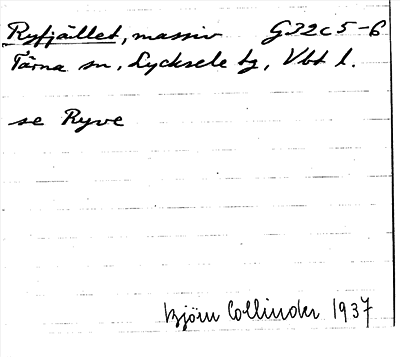 Ryfjället, massiv G32c5-6
Tärna sn, Lycksele tg, Vbt l.
se Ryve
Björn Collinder 1937